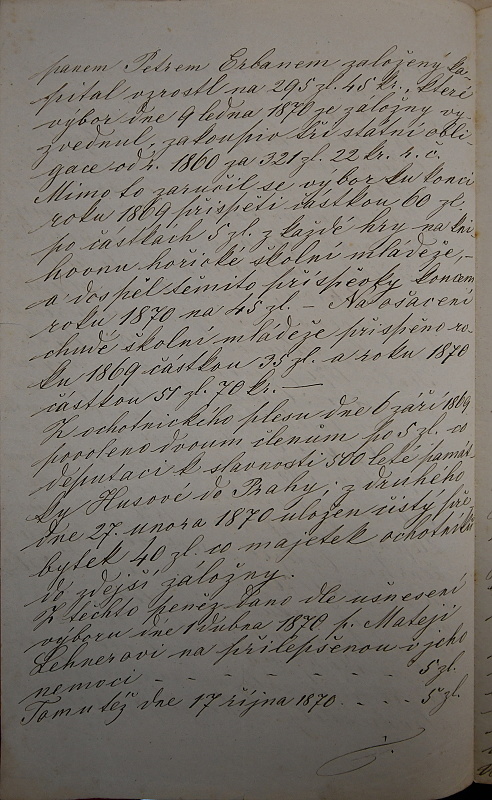 panem Petrem Erbanem založený ka-
pital vzrostl na 295 zl. 45 kr., které
výbor dne 9 ledna 1870 ze záložny vy-
zvednul, zakoupiv tři státní obli-
gace od r. 1860 za 321 zl. 22 kr. r. č.
Mimo to zaručil se výbor ku konci
roku 1869 přispěti částkou 60 zl.
po částkách 5 zl. z každé hry na kni-
hovnu hořické školní mládeže, -
a dospěl těmito příspěvky koncem
roku 1870 na 45 zl. - Na ošacení
chudé školní mládeže přispěno ro-
ku 1869 částkou 35 zl. a roku 1870
částkou 51 zl. 70 kr. -
Z ochotnického plesu dne 6 září 1869
povoleno dvoum členům po 5 zl. co
deputaci k slavnosti 500 leté památ-
ky Husové do Prahy; z druhého
dne 27. unora 1870 uložen čistý pře-
bytek 40 zl. co majetek ochotníků
do zdejší záložny.
Z těchto peněz dáno dle usnesení
výboru dne 1 dubna 1870 p. Matěji
Lehnerovi na přilepšenou v jeho
nemoci - - - - - - - 5 zl.
Tomu též dne 17 října 1870. - - - 5 zl.